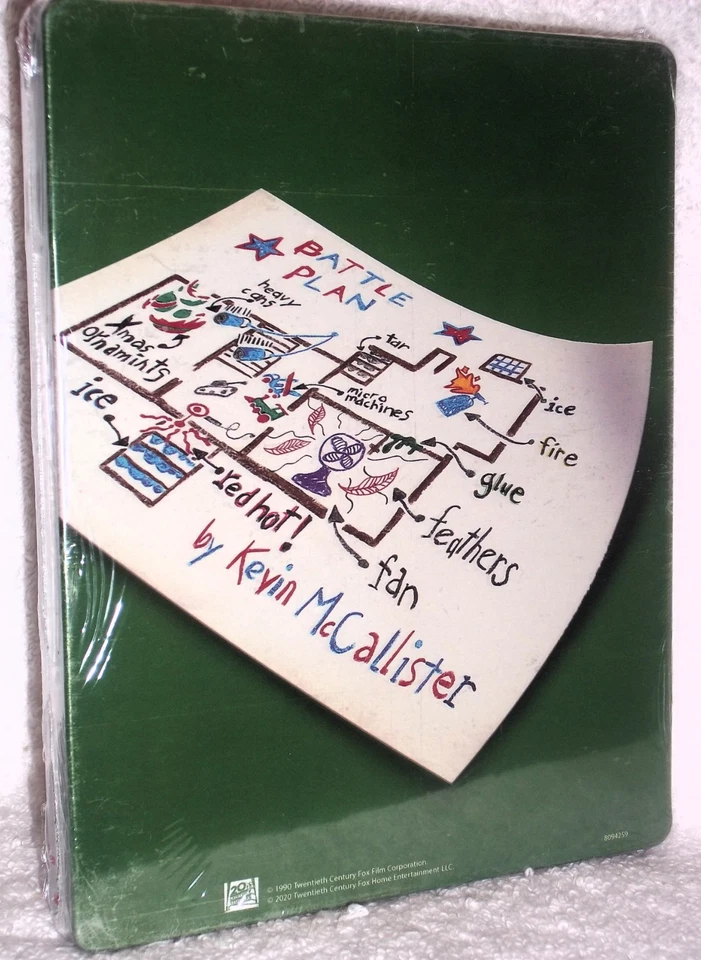 BATTLE
PLAN
heavy
cans
tar
Xmas
ornamints
micro
machines
ice
ice
fire
glue
red hot!
feathers
fan
by Kevin McCallister
8094259
20th
© 1990 Twentieth Century Fox Film Corporation.
© 2020 Twentieth Century Fox Home Entertainment LLC.